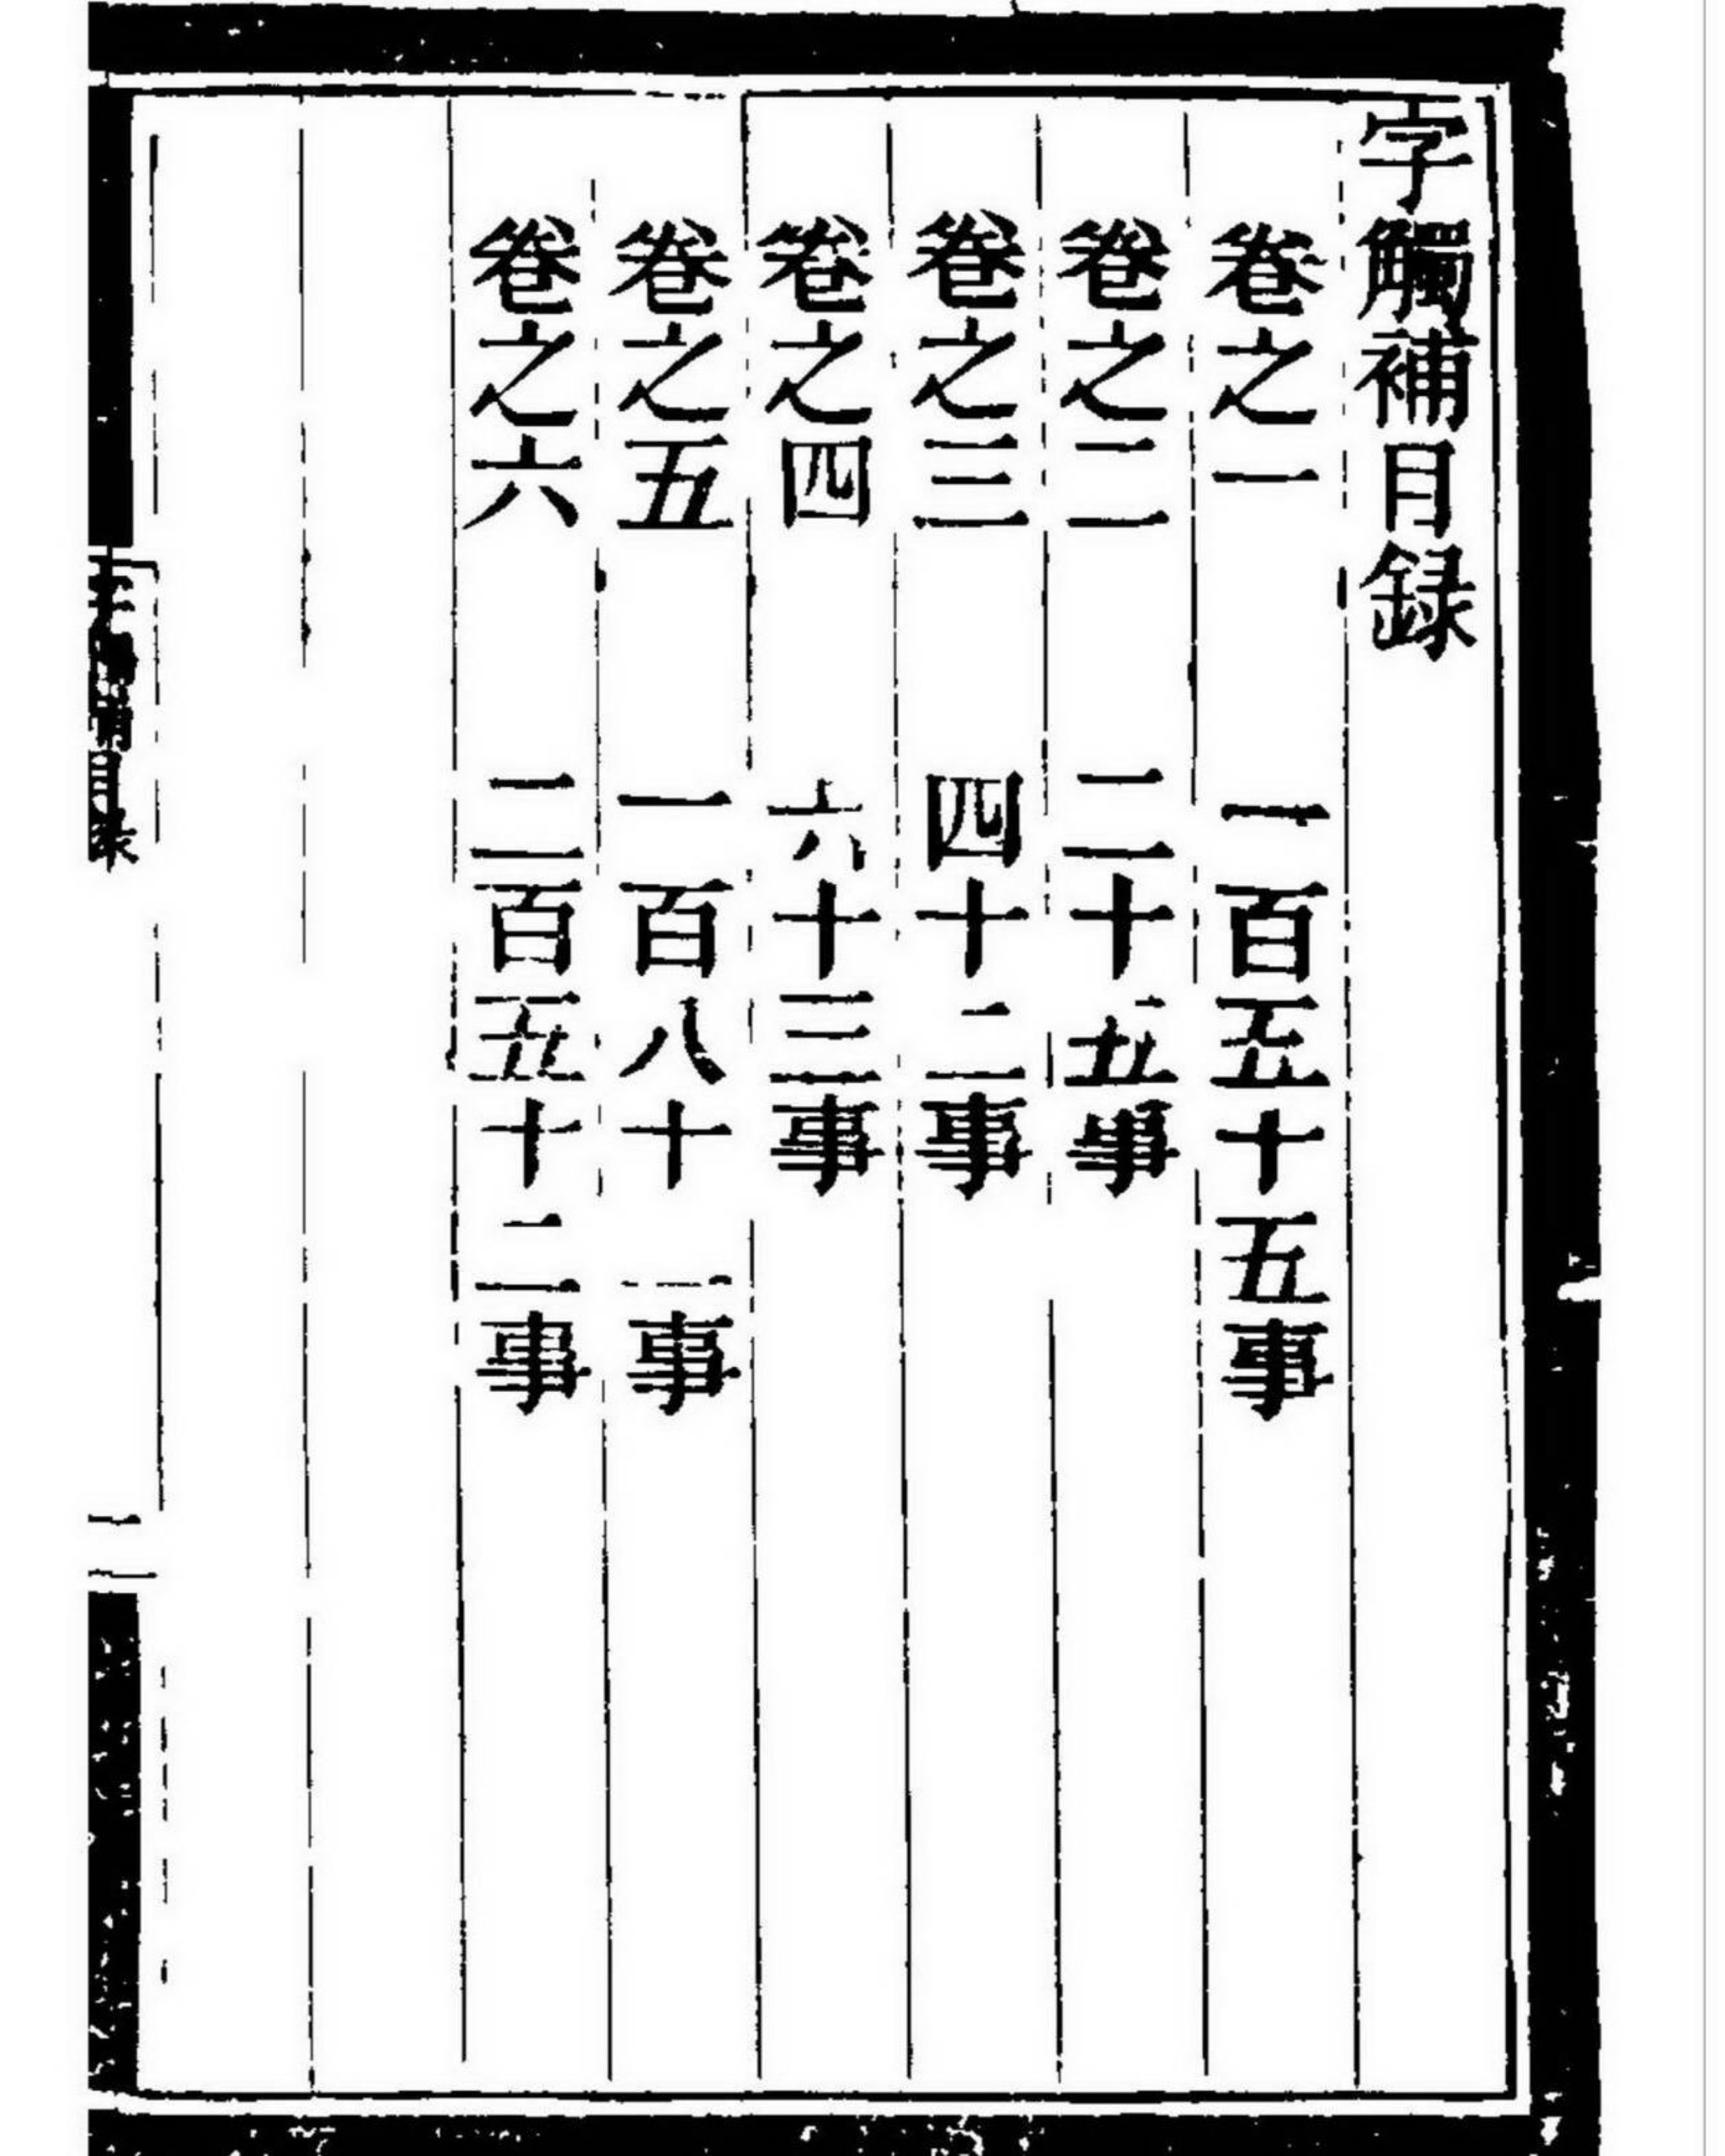 字觸補目録
卷之一 一百五十五事
卷之二 二十五事
卷之三 四十二事
卷之四 六十三事
卷之五 一百八十一事
卷之六 二百五十二事
目录